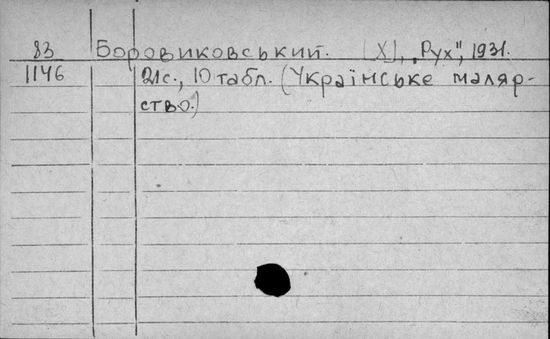 83 Боровиковський. [Х], „Рух", 1931.
1146 21с., 10 табл. (Українське маляр-
ство.)